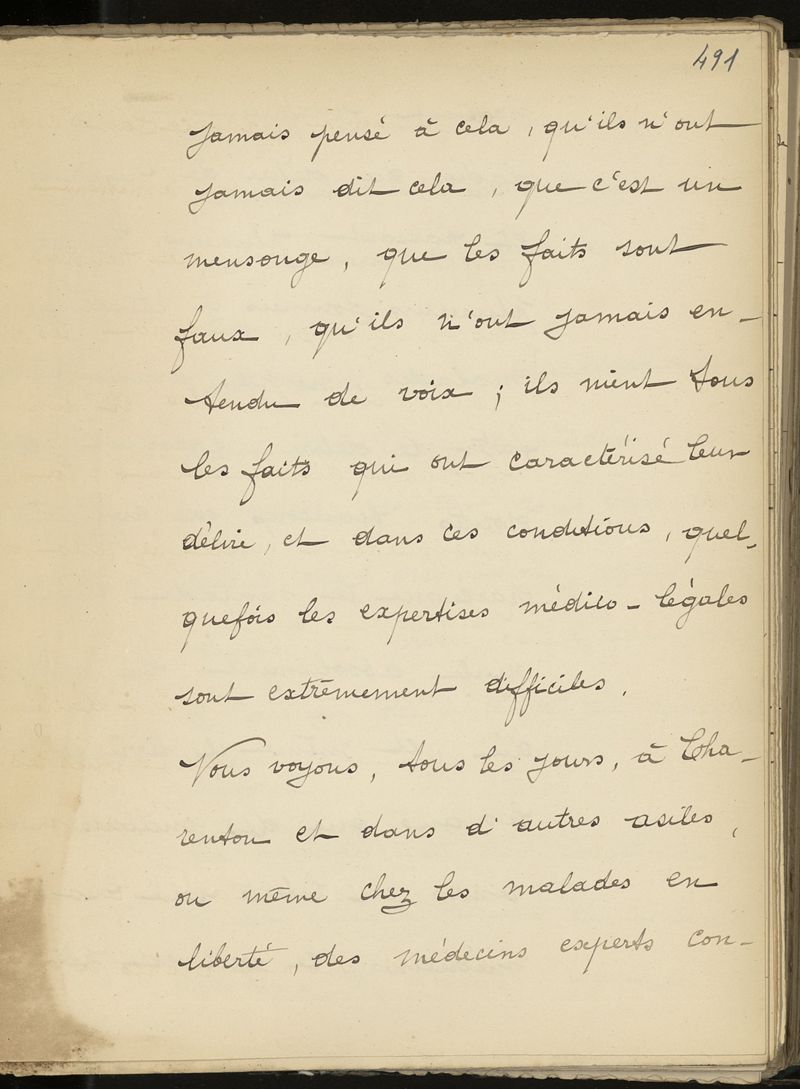 491
jamais pensé à cela, qu'ils n'ont
jamais dit cela, que c'est un
mensonge, que les faits sont
faux, qu'ils n'ont jamais en-
tendu de voix ; ils nient tous
les faits qui ont caractérisé leur
délire, et dans ces conditions, quel-
quefois les expertises médico-légales
sont extrêmement difficiles.
Nous voyons, tous les jours, à Cha-
renton et dans d'autres asiles,
ou même chez les malades en
liberté, des médecins experts con-